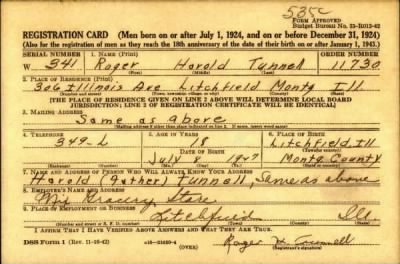 535c
FORM APPROVED
Budget Bureau No. 33-R012-42
REGISTRATION CARD (Men born on or after July 1, 1924, and on or before December 31, 1924)
(Also for the registration of men as they reach the 18th anniversary of the date of their birth on or after January 1, 1943.)
SERIAL NUMBER 1. NAME (Print) ORDER NUMBER
W 341 Roger Harold Tunnell 11730
(First) (Middle) (Last)
2. PLACE OF RESIDENCE (Print)
306 Illinois Ave Litchfield Montg Ill
[THE PLACE OF RESIDENCE GIVEN ON LINE 2 ABOVE WILL DETERMINE LOCAL BOARD
JURISDICTION; LINE 2 OF REGISTRATION CERTIFICATE WILL BE IDENTICAL]
3. MAILING ADDRESS
Same as above
4. TELEPHONE 5. AGE IN YEARS 6. PLACE OF BIRTH
349-L 18 Litchfield, Ill
DATE OF BIRTH
July Montg County
7. NAME AND ADDRESS OF PERSON WHO WILL ALWAYS KNOW YOUR ADDRESS
Harold (Father) Tunnell, Same as above
8. EMPLOYER'S NAME AND ADDRESS
Grocery Store
9. PLACE OF EMPLOYMENT OR BUSINESS
Litchfield Ill.
I AFFIRM THAT I HAVE VERIFIED ABOVE ANSWERS AND THAT THEY ARE TRUE.
DSS Form 1
Roger H Tunnell